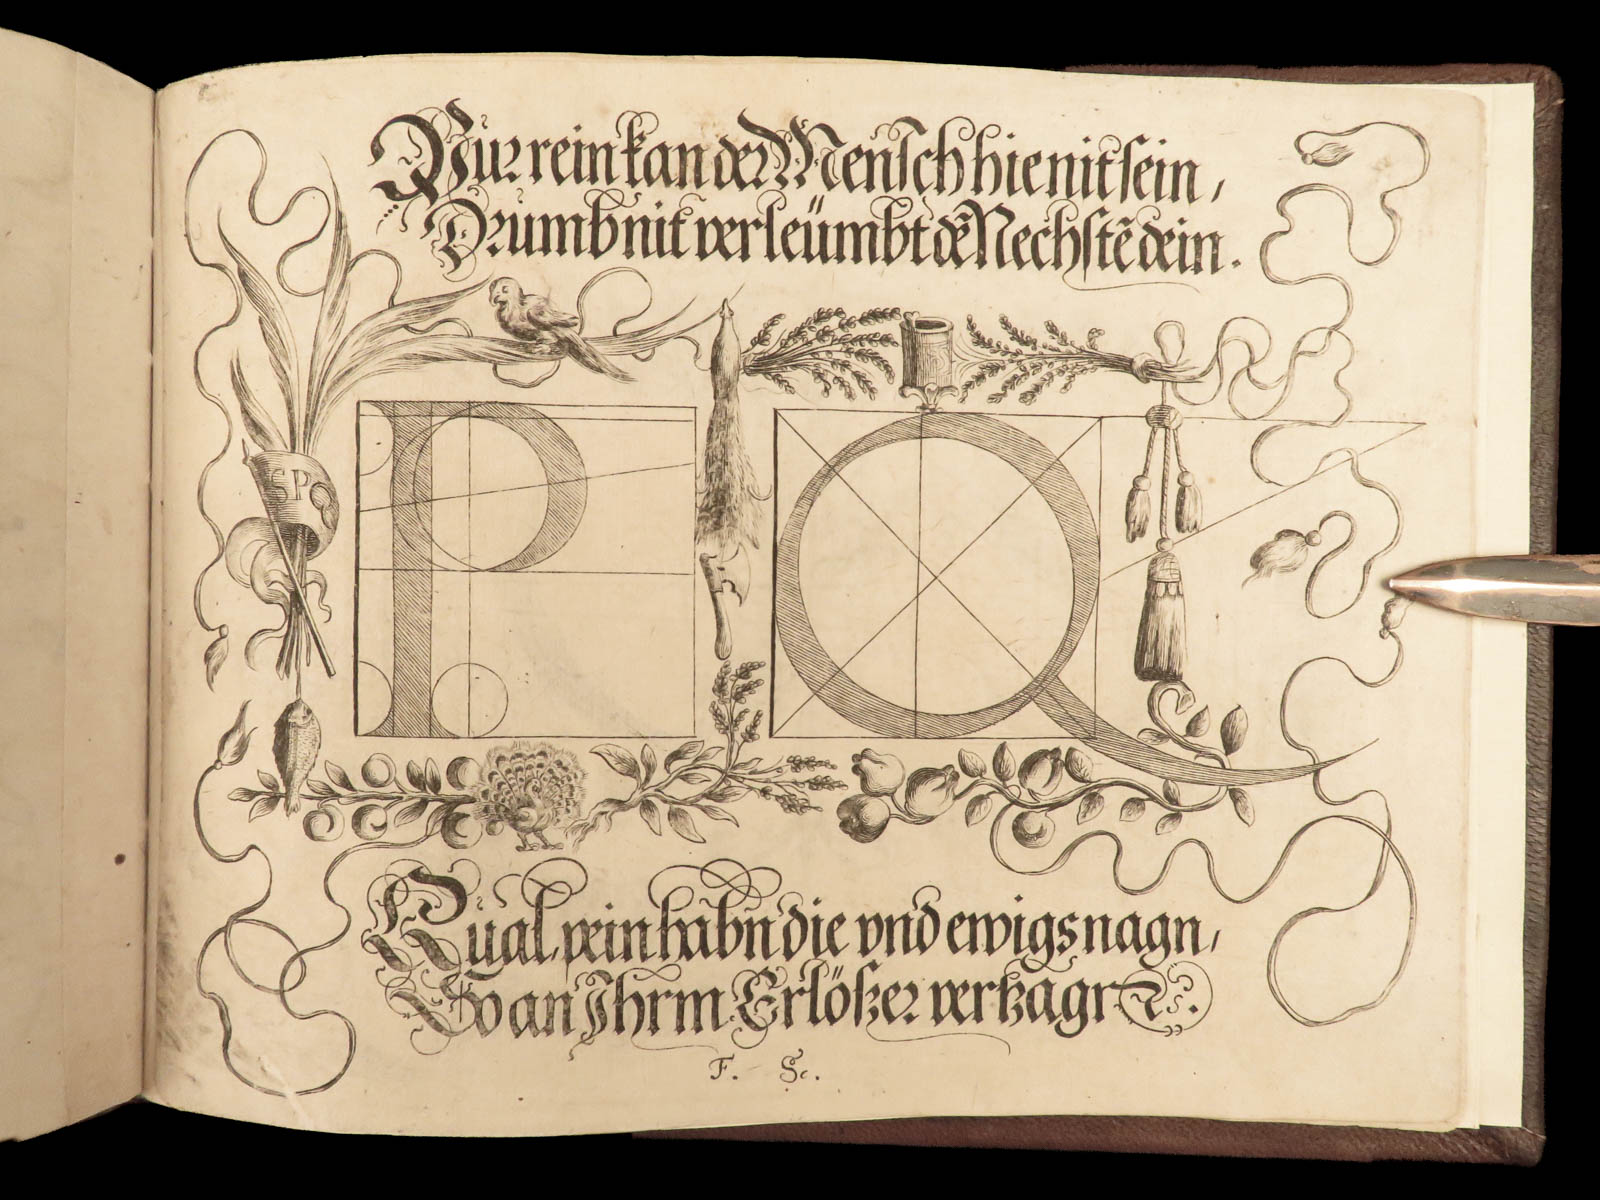 Pur rein kan der Mensch hie nit sein,
Drumb nit verleümbt dē Nechstē dein.
SPQ
P Q
Qual, pein habn die vnd ewigs nagn,
So an Ihrm Erlößer vertzagn ꝛc.
F. Sc.